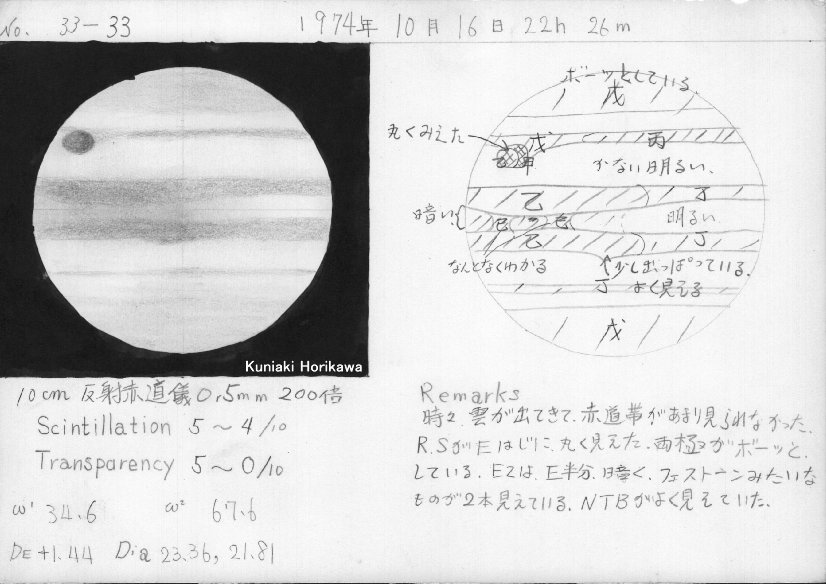 No. 33-33
1974年 10月 16日 22h 26m
ボーッとしている
戊
丸くみえた
戊
丙
甲
かない明るい、
乙
丁
暗い
己
己
明るい
乙
丁
なんとなくわかる
少しでっぱっている.
丁 よく見える
戊
Kuniaki Horikawa
10cm 反射赤道儀 Or5mm 200倍
Scintillation 5~4/10
Transparency 5~0/10
ω¹ 34.6 ω² 67.6
DE +1.44 Dia 23.36, 21.81
Remarks
時々雲が出てきて、赤道帯があまり見られなかった、
R.SがEはじに、丸く見えた、両極がボーッと、
している、EZは、E半分、暗く、フェストーンみたいな
ものが2本見えている、NTBがよく見えていた、